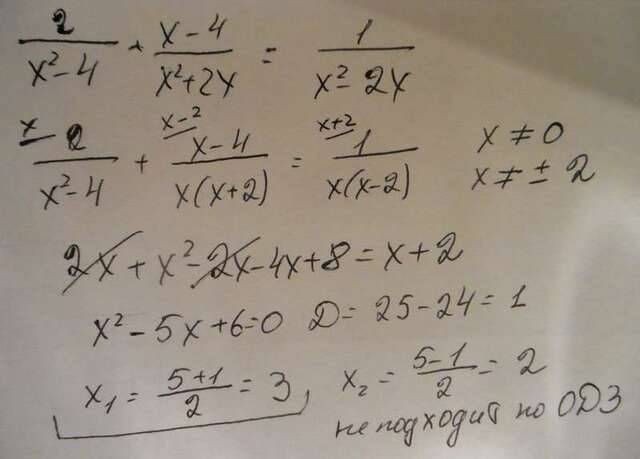 2/(x²-4) + (x-4)/(x²+2x) = 1/(x²-2x)
x 2/(x²-4) + x-2 (x-4)/(x(x+2)) = x+2 1/(x(x-2)) x≠0
x≠±2
2x + x²-2x-4x+8=x+2
x²-5x+6=0 D=25-24=1
x₁=(5+1)/2=3, x₂=(5-1)/2=2
не подходит по ОДЗ